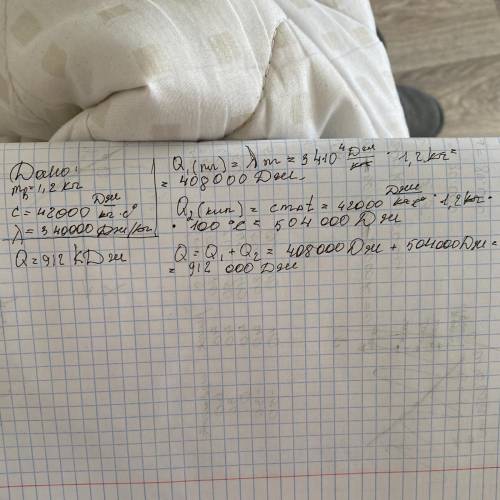 Дано:
m₆ = 1,2 кг
c = 42000 Дж/кг·c°
λ = 340000 Дж/кг
Q = 912 кДж
Q₁(пл) = λm = 34·10⁴ Дж/кг · 1,2 кг =
= 408000 Дж.
Q₂(кип) = cmΔt = 42000 Дж/кг·c° · 1,2 кг ·
· 100 °C = 504 000 Дж
Q = Q₁ + Q₂ = 408000 Дж + 504000 Дж =
= 912 000 Дж